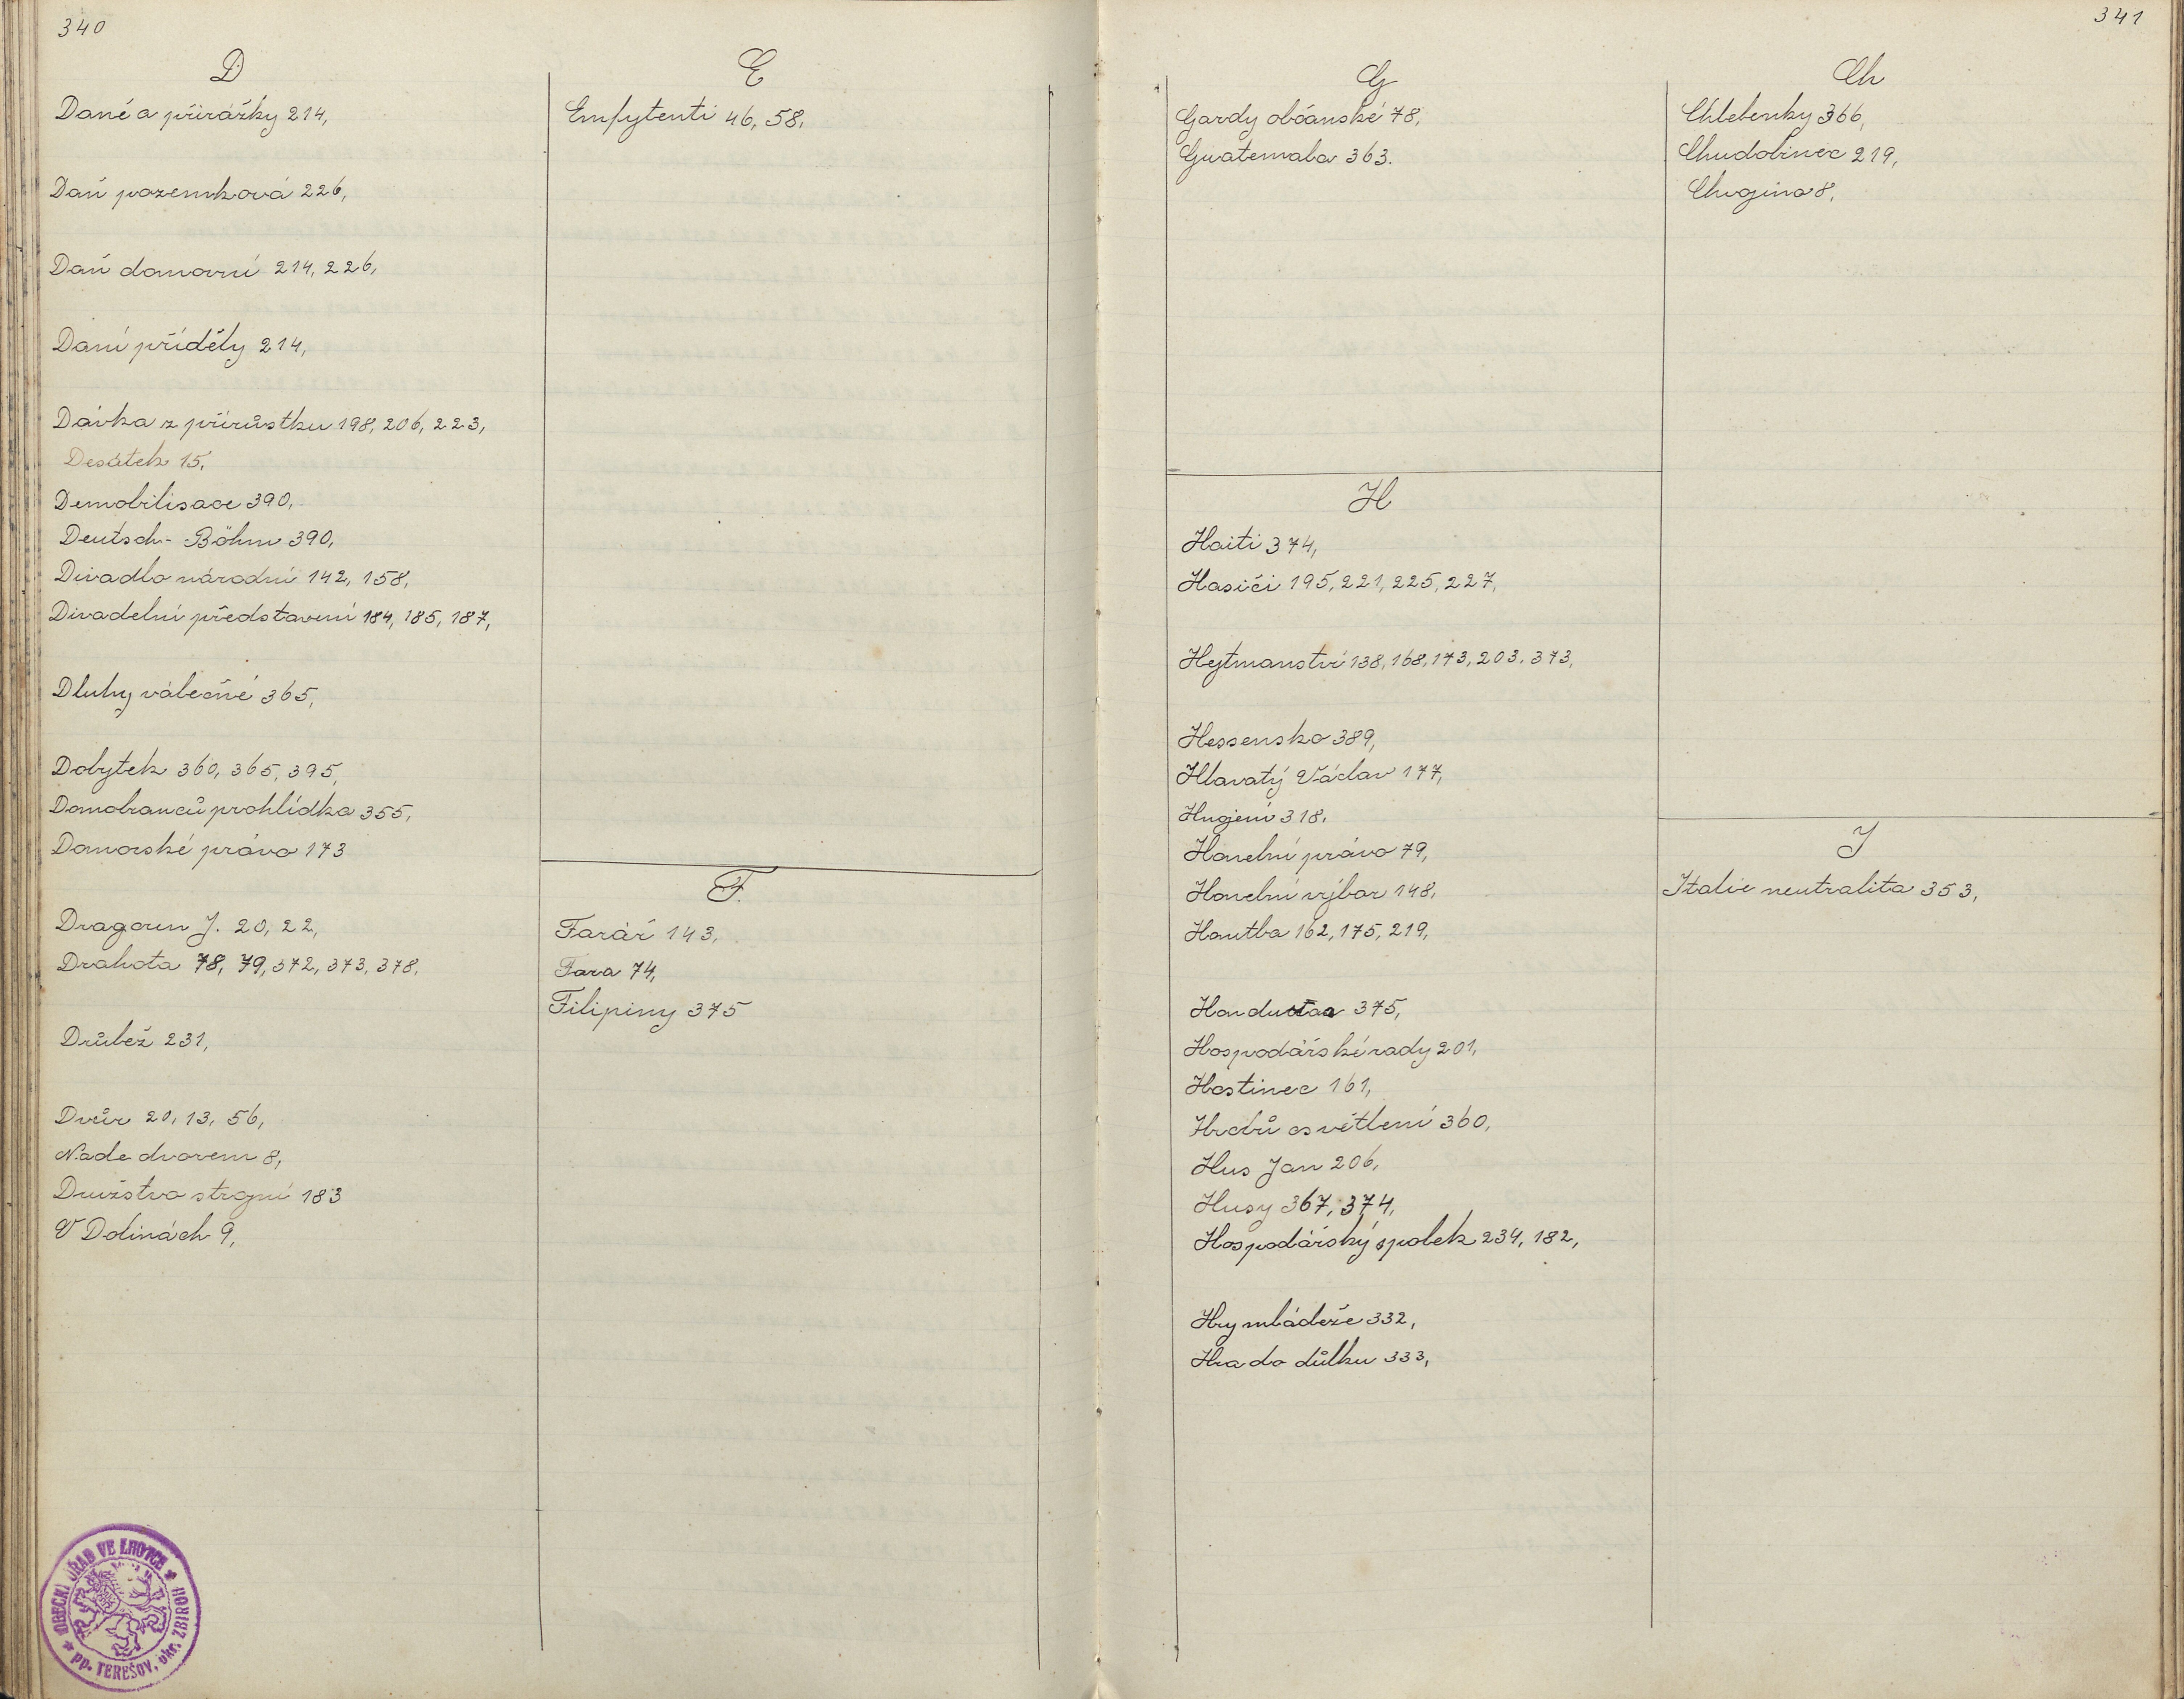 340
D
Daně a přirážky 214,
Daň pozemková 226,
Daň domovní 214, 226,
Daní příděly 214,
Dávka z přírůstku 198, 206, 223,
Desátek 15,
Demobilisace 390,
Deutsch-Böhm 390,
Divadlo národní 142, 158,
Divadelní představení 184, 185, 187,
Dluhy válečné 365,
Dobytek 360, 365, 395,
Domobranců prohlídka 355,
Domovské právo 173
Dragoun J. 20, 22,
Drahota 78, 79, 372, 373, 378,
Drůbež 231,
Dvůr 20, 13, 56,
Nade dvorem 8,
Družstvo strojní 183
V Dolinách 9,
OBECNÍ ÚŘAD VE LHOTCE
pp. TEREŠOV, okr. ZBIROH
E
Emfytenti 46, 58,
F.
Farář 143,
Fara 74,
Filipiny 375
341
G
Gardy občanské 78,
Guatemala 363.
H
Haiti 374,
Hasiči 195, 221, 225, 227,
Hejtmanství 138, 168, 173, 203, 373,
Hessensko 389,
Hlavatý Václav 177,
Hnojení 318,
Honební právo 79,
Honební výbor 148,
Honitba 162, 175, 219,
375,
Hospodářské rady 201,
Hostinec 161,
Hrobů osvětlení 360,
Hus Jan 206,
Husy 367, 374,
Hospodářský spolek 234, 182,
Hry mládeže 332,
Hra do důlku 333,
Ch
Chlebenky 366,
Chudobinec 219,
8,
J
Italie neutralita 353,